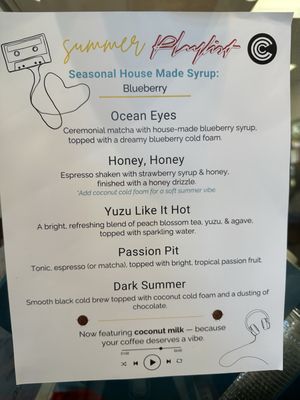 summer Playlist
Seasonal House Made Syrup:
Blueberry
Ocean Eyes
Ceremonial matcha with house-made blueberry syrup,
topped with a dreamy blueberry cold foam.
Honey, Honey
Espresso shaken with strawberry syrup & honey,
finished with a honey drizzle.
*Add coconut cold foam for a soft summer vibe.
Yuzu Like It Hot
A bright, refreshing blend of peach blossom tea, yuzu, & agave,
topped with sparkling water.
Passion Pit
Tonic, espresso (or matcha), topped with bright, tropical passion fruit.
Dark Summer
Smooth black cold brew topped with coconut cold foam and a dusting of
chocolate.
Now featuring coconut milk — because
your coffee deserves a vibe.